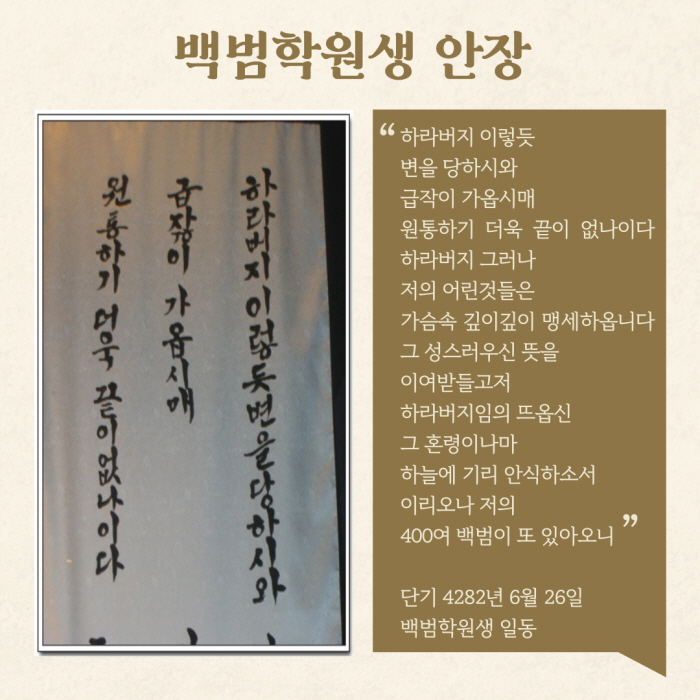 백범학원생 안장
하라버지 이렇듯 변을 당하시와
급작이 가옵시매
원통하기 더욱 끝이 없나이다
“ 하라버지 이렇듯
변을 당하시와
급작이 가옵시매
원통하기 더욱 끝이 없나이다
하라버지 그러나
저의 어린것들은
가슴속 깊이깊이 맹세하옵니다
그 성스러우신 뜻을
이여받들고저
하라버지임의 뜨옵신
그 혼령이나마
하늘에 기리 안식하소서
이리오나 저의
400여 백범이 또 있아오니 ”
단기 4282년 6월 26일
백범학원생 일동